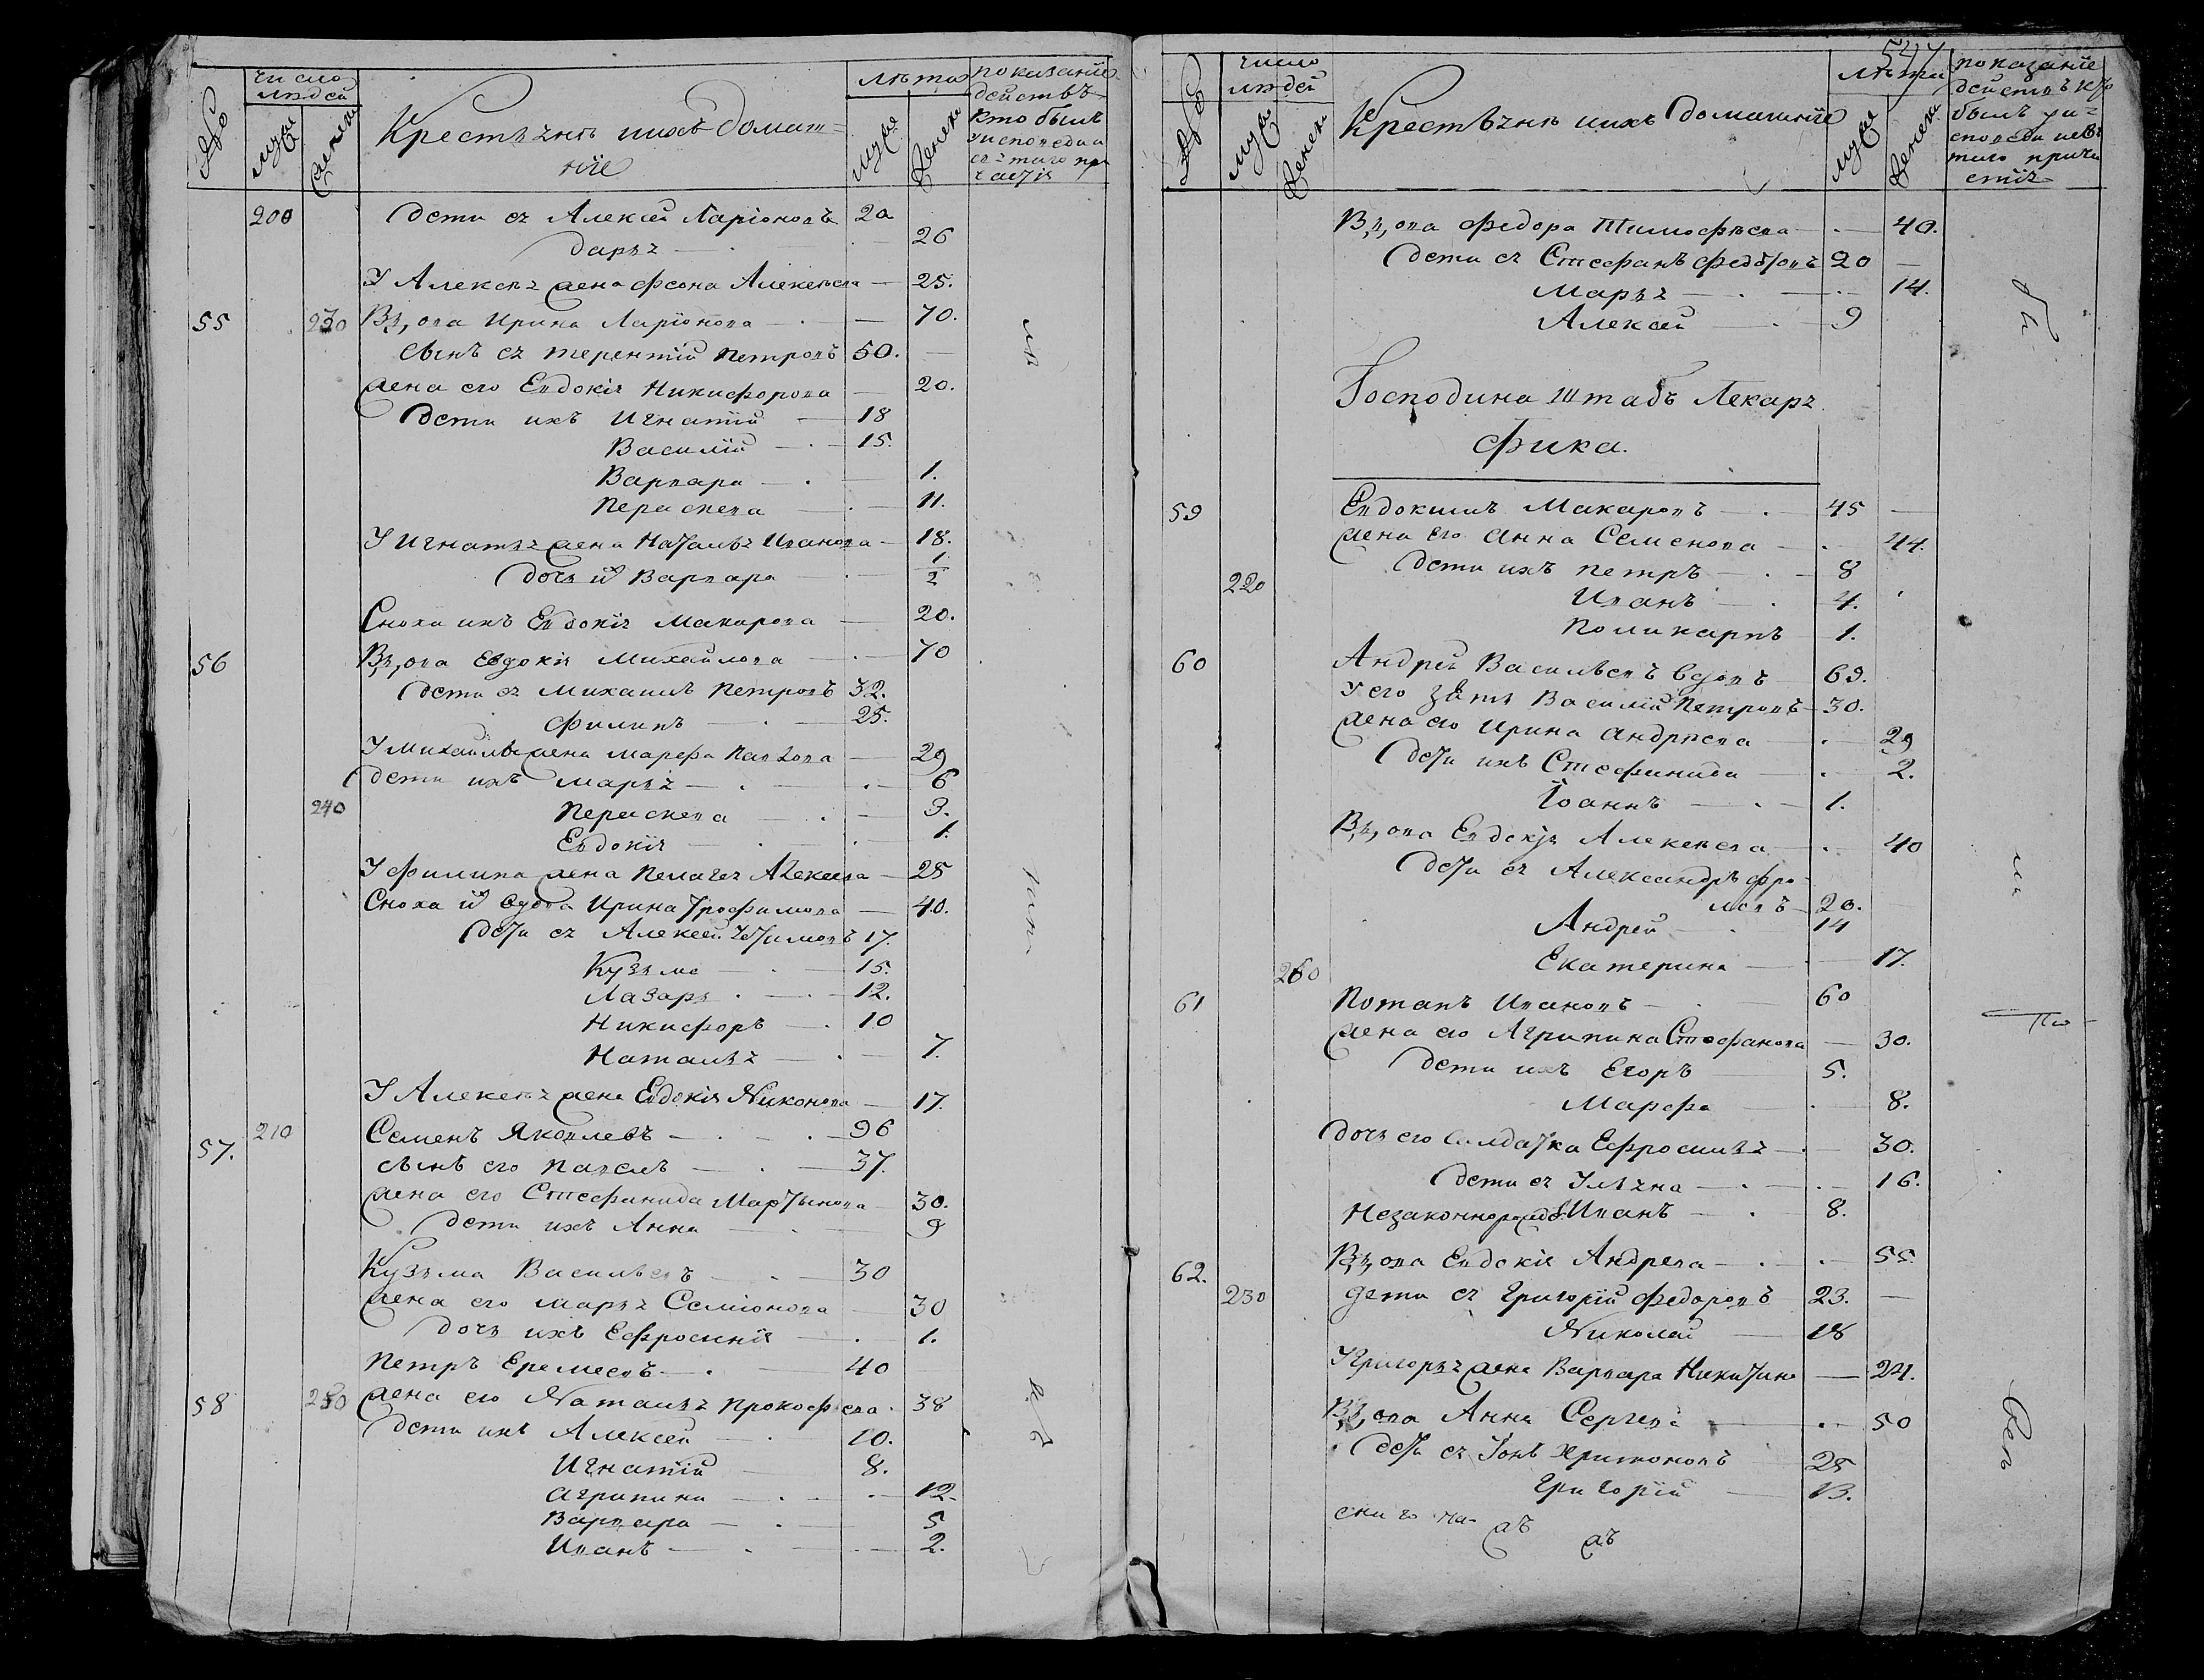 число
людей
муж
женска
Крестьянѣ ихъ домаш=
ніе
лѣта
муж
женска
показаніе
действъ
кто былъ
у исповеди и
св: таго при
частія
200 Дети ея Алексей Ларіоновъ 20
Дарья — 26
У Алексѣя жена Феона Алексѣева — 25.
55 230 Вдова Ирина Ларіонова — 70.
сынъ ея Терентій Петровъ 50.
жена его Евдокія Никифорова — 20.
Дети ихъ Игнатій — 18
Василій — 15.
Варвара — 1.
Параскева — 11.
У Игнатья жена Наталья Иванова — 18.
дочь их Варвара 1/2
Сноха ихъ Евдокія Макарова — 20.
56 Вдова Евдокія Михайлова — 70
Дети ея Михаилъ Петровъ 32.
Филипъ — 25.
У Михаилы жена Марфа Павлова — 29
Дети ихъ Марья — 6
240 Параскева — 3.
Евдокія — 1.
У Филипа жена Пелагея Алексеева — 25
Сноха их вдова Ирина Трофимова — 40.
дети ея Алексей 17.
Кузьма — 15.
Лазарь — 12.
Никифоръ — 10
Наталья — 7.
У Алексѣя жена Евдокія Никонова — 17.
57. 210 Семенъ Яковлевъ — 96
сынъ его Павелъ — 37.
жена его Стефанида Мартынова — 30.
Дети ихъ Анна 9
Кузьма Васильевъ — 30
жена его Марья Семіонова 30
дочь ихъ Ефросинія — 1.
Петръ Еремеевъ — 40
58 250 жена его Наталья Прокофьева 38
Дети ихъ Алексей — 10.
Игнатій — 8.
Агрипина — 12.
Варвара — 5
Иванъ — 2.
число
людей
муж
женска
Крестьянѣ ихъ домашніе
547
лѣта
муж
женска
показаніе
действъ кто
былъ у и=
споведи и св:
таго прича
стія
Вдова Федора Тимофѣева — 40.
Дети ея Стефанъ Федоровъ 20 —
Марья — 14.
Алексей — 9
Господина Штабъ Лекаря
Фика.
59 Евдокимъ Макаровъ — 45
жена его Анна Семенова — 44.
220 Дети ихъ Петръ — 8
Иванъ — 4.
Поликарпъ 1.
60 Андрей Васильевъ вдовъ 69.
У его зять Василій Петровъ 30.
жена его Ирина Андрѣева — 29
дети ихъ Стефанида — 2.
Іоаннъ — 1.
Вдова Евдокія Алексѣева — 40
дети ея Александръ Фро-
ловъ 20.
Андрей — 14
260 Екатерина — 17.
61 Потапъ Ивановъ — 60
жена его Агрипина Стефанова — 30.
Дети ихъ Егоръ 5.
Марфа — 8.
дочь его солдатка Ефросинья — 30.
Дети ея Ульяна — 16.
Незаконнорожд: Иванъ — 8.
62. Вдова Евдокія Андреева — 55.
230 Дети ея Григорій Федоровъ 23. —
Николай — 18
У Григорья жена Варвара Никитина — 24.
Вдова Анна Сергеева — 50
дети ея Іонъ Харитоновъ 25
Григорій — 13.